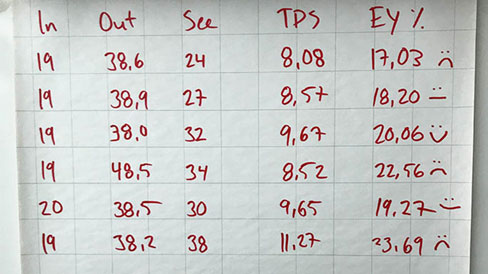 In Out Sec TPS EY %
19 38,6 24 8,08 17,03
19 38,9 27 8,57 18,20
19 38,0 32 9,67 20,06
19 48,5 34 8,52 22,56
20 38,5 30 9,65 19,27
19 38,2 38 11,27 23,69